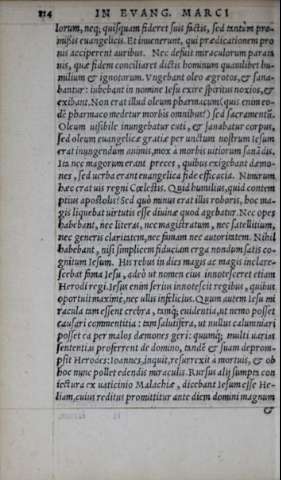 814 IN EVANG. MARCI
lorum, neq; quisquam fideret suis factis, sed tantùm pro-
mißis euangelicis. Et inuenerunt, qui prædicationem pro
nis acciperent auribus. Nec defuit miraculorum paratu
us, quæ fidem conciliaret dictis hominum quamlibet hu-
milium & ignotorum. Vngebant oleo ægrotos, & sana-
bantur: iubebant in nomine Iesu exire spiritus noxios, &
exibant. Non erat illud oleum pharmacum (quis enim eo-
dē pharmaco medetur morbis omnibus?) sed sacramentū.
Oleum uisibile inungebatur cuti, & sanabatur corpus,
sed oleum euangelicæ gratiæ per unctum nostrum Iesum
erat inungendum animis, mox à morbis uitiorum sanādis.
Ita nec magorum erant preces, quibus exigebant dæmo-
nes, sed uerba erant euangelica fide efficacia. Nimirum
hæc erat uis regni Cœlestis. Quid humilius, quid contem
ptius apostolis? Sed quò minus erat illis roboris, hoc ma-
gis liquebat uirtutis esse diuinæ quod agebatur. Nec opes
habebant, nec literas, nec magistratum, nec satellitium,
nec generis claritatem, nec famam nec autoritatem. Nihil
habebant, nisi simplicem fiduciam erga nondum satis co-
gnitum Iesum. His rebus in dies magis ac magis inclare-
scebat fama Iesu, adeò ut nomen eius innotesceret etiam
Herodi regi. Iesus enim seriùs innotescit regibus, quibus
oportuit maximè, nec ullis infelicius. Quum autem Iesu mi
racula tam essent crebra, tamq; euidentia, ut nemo posset
causari commentitia: tam salutifera, ut nullus calumniari
posset ea per malos dæmones geri: quumq; multi uarias
sententias proferrent de domino, tandē & suam deprom-
psit Herodes: Ioannes, inquit, resurrexit à mortuis, & ob
hoc nunc pollet edendis miraculis. Rursus alij sumpta con
iectura ex uaticinio Malachiæ, dicebant Iesum esse He-
liam, cuius reditus promittitur ante diem domini magnum
&